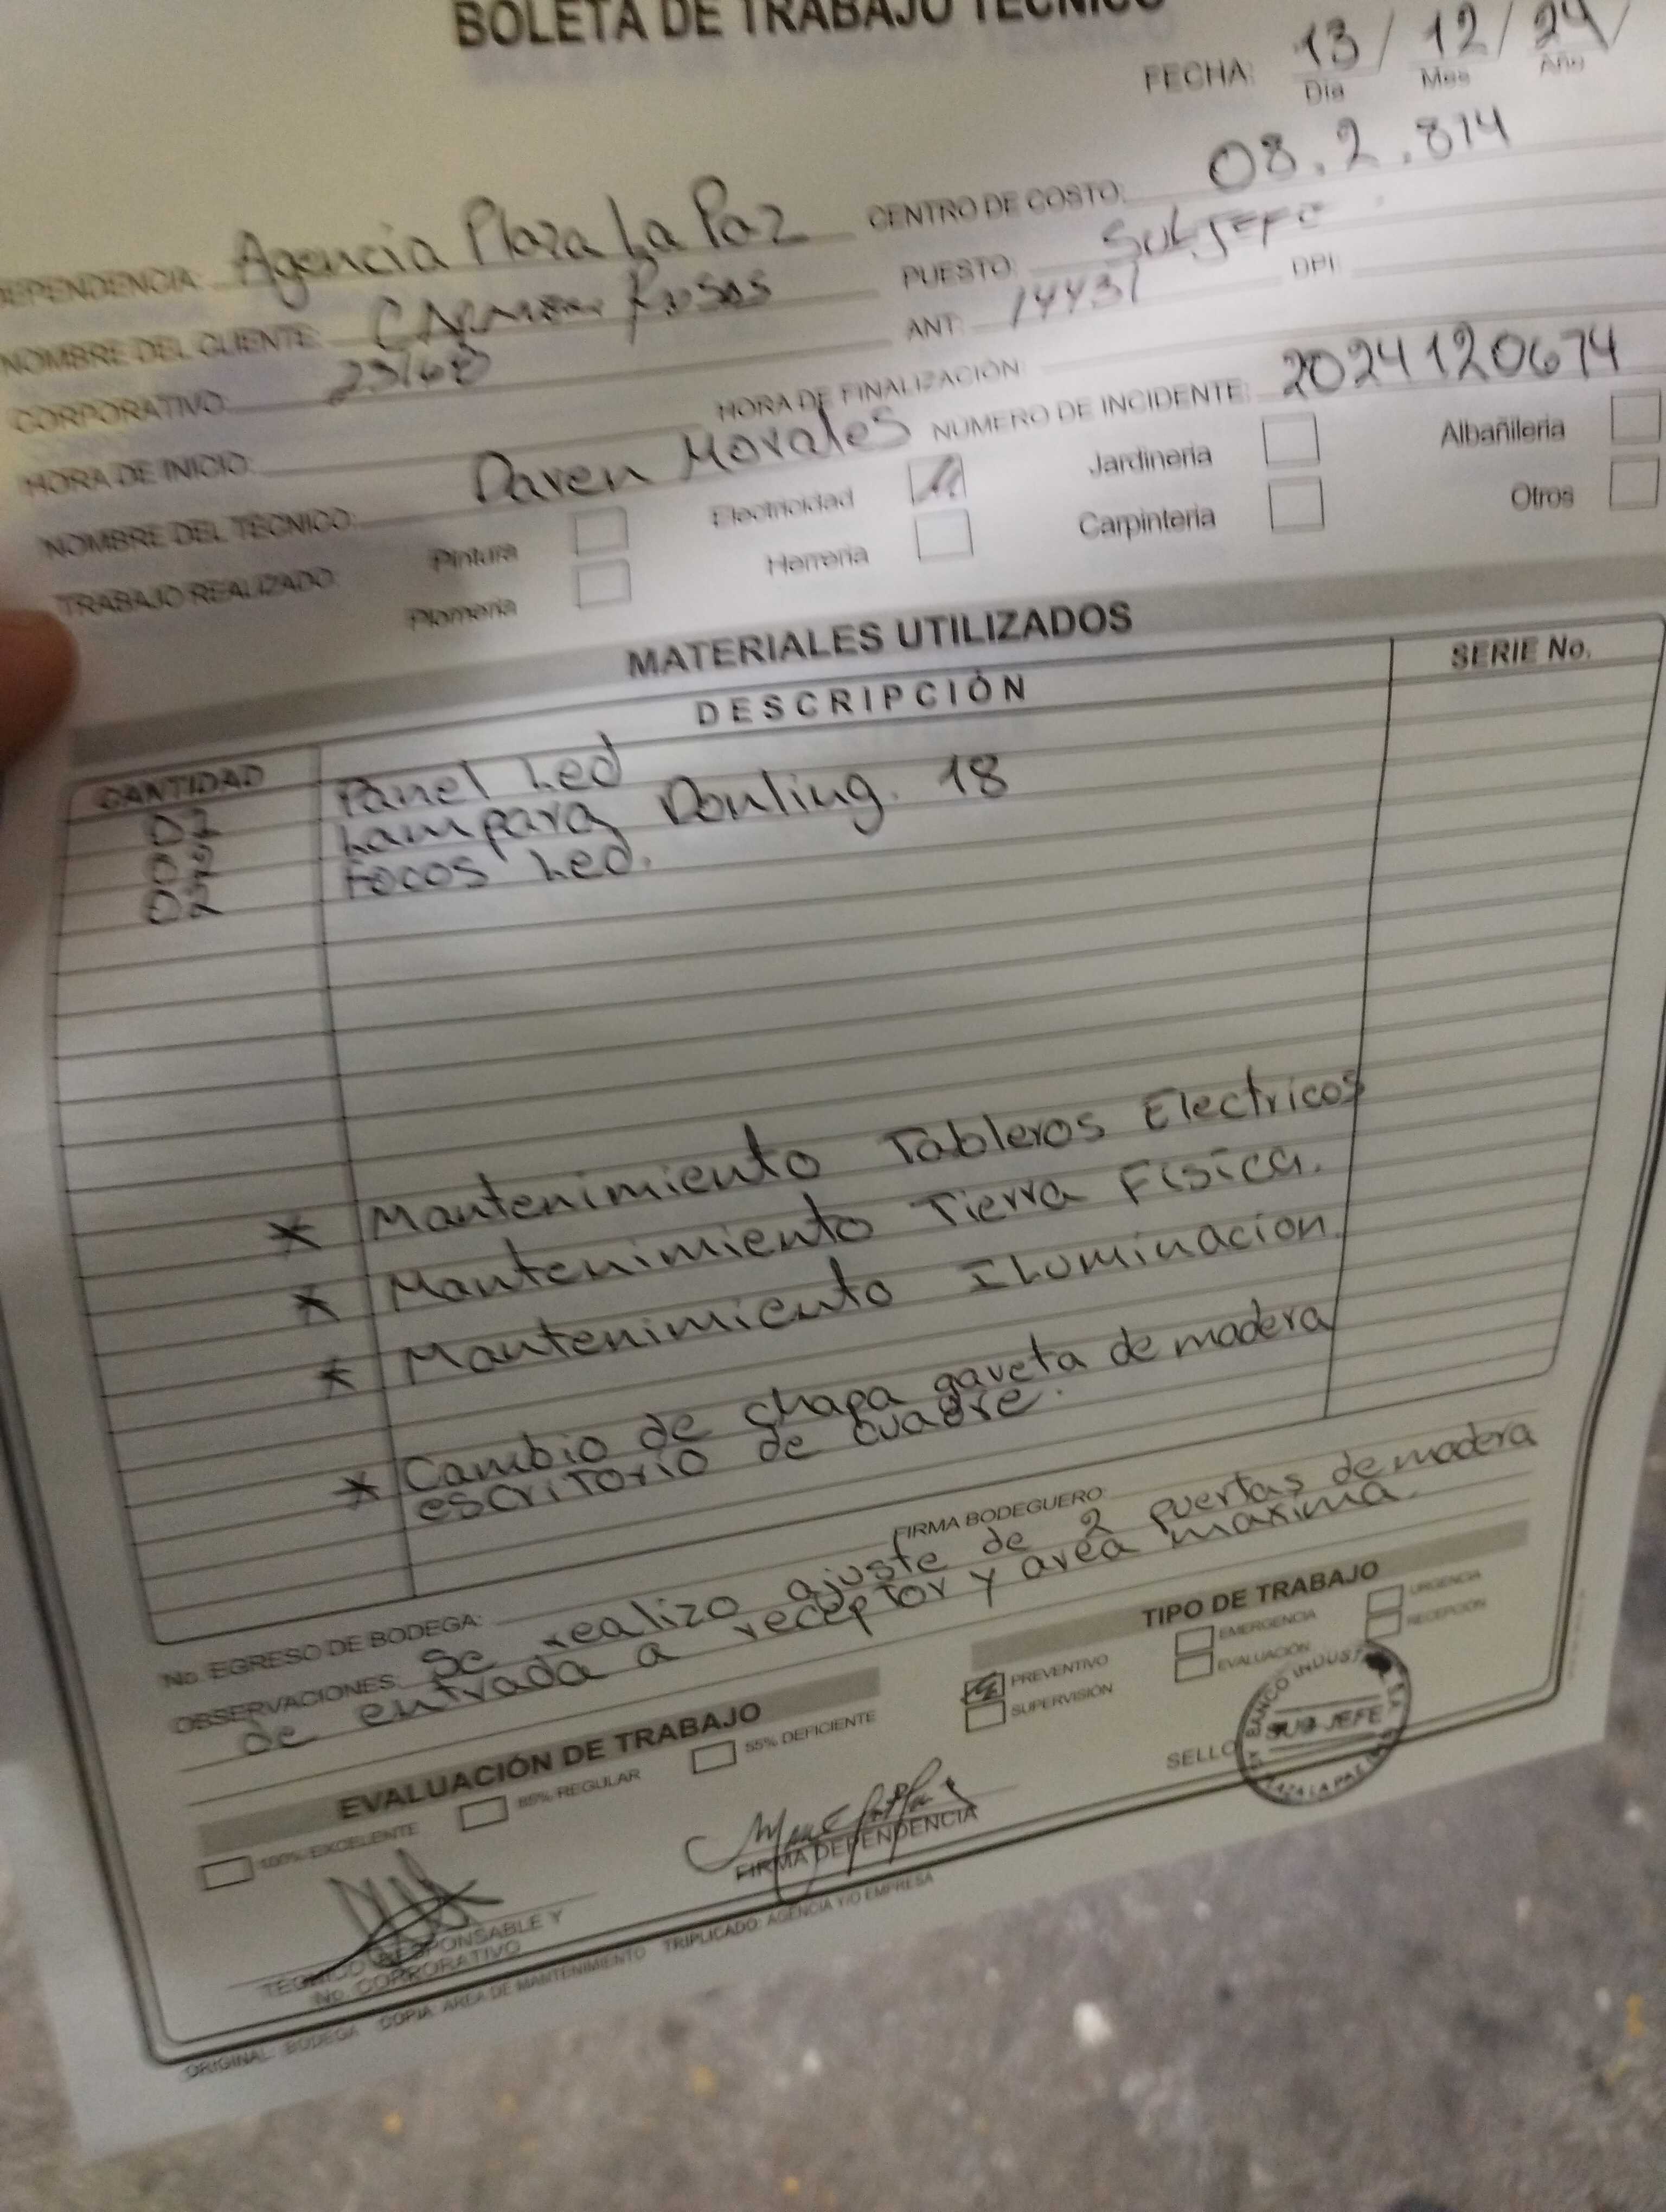 BOLETA DE TRABAJO TÉCNICO
FECHA: 13 / 12 / 24 /
Día Mes Año
DEPENDENCIA: Agencia Plaza La Paz CENTRO DE COSTO: 08.2.814
NOMBRE DEL CLIENTE: Carmen Rosas PUESTO: SubJEFE
CORPORATIVO: ANT: 14431 DPI:
HORA DE INICIO: HORA DE FINALIZACIÓN:
NOMBRE DEL TECNICO: Daven Morales NÚMERO DE INCIDENTE: 2024120674
TRABAJO REALIZADO: Pintura Electricidad Jardineria Albañileria
Plomeria Herreria Carpinteria Otros
MATERIALES UTILIZADOS
CANTIDAD DESCRIPCIÓN SERIE No.
02 Panel Led
02 Lampara Donling. 18
02 Focos Led.
* Mantenimiento Tableros Electricos
* Mantenimiento Tierra Fisica.
* Mantenimiento Iluminacion.
* Cambio de chapa gaveta de madera
escritorio de cuadre.
No. EGRESO DE BODEGA: FIRMA BODEGUERO:
OBSERVACIONES: Se realizo ajuste de 2 puertas de madera
de entrada a receptor y area maxima.
EVALUACIÓN DE TRABAJO
100% EXCELENTE 85% REGULAR 55% DEFICIENTE
TIPO DE TRABAJO
PREVENTIVO EMERGENCIA URGENCIA
SUPERVISIÓN EVALUACIÓN RECEPCIÓN
TECNICO RESPONSABLE Y
No. CORPORATIVO
FIRMA DEPENDENCIA
SELLO
BANCO INDUST
SUB-JEFE
PLAZA LA PAZ
ORIGINAL: BODEGA COPIA: AREA DE MANTENIMIENTO TRIPLICADO: AGENCIA Y/O EMPRESA